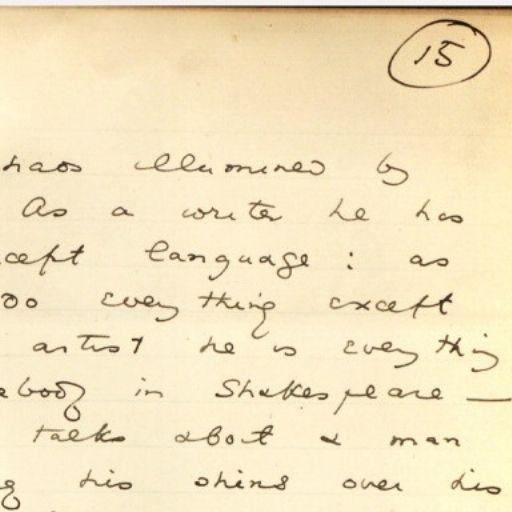 15
haos illumined by
As a writer he has
cept language : as
do everything except
artist he is everything
ebody in Shakespeare —
talks about a man
g his shins over his